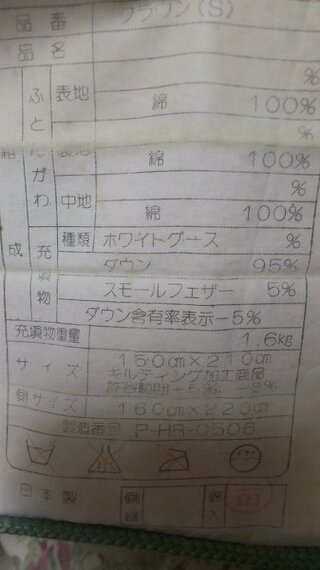 品番 クラウン(S)
品名
ふとんがわ 表地 %
綿 100%
%
綿 100%
中地 %
綿 100%
組成 充填物 種類 ホワイトグース %
ダウン 95%
スモールフェザー 5%
ダウン含有率表示-5%
充填物重量 1.6kg
サイズ 150cm×210cm
キルティング加工商品
許容範囲-5%
サイズ 160cm×220cm
製造番号 P-HR-0506
日本製 側縫 綿入